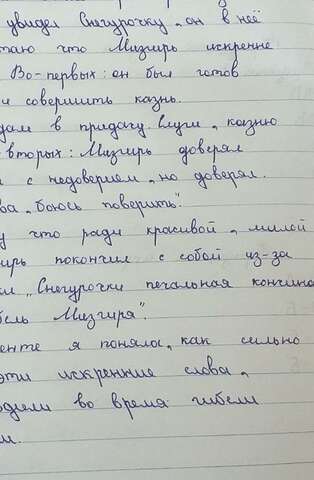 увидел Снегурочку, он в неё
таю что Мизгирь искренне
Во-первых: он был готов
и совершить казнь.
дам в придачу. Слуги, казню
вторых: Мизгирь доверял
с недоверием, но доверял.
ва, боюсь поверить".
у что ради красивой, милой
ирь покончил с собой из-за
"Снегурочки печальная кончина
бель Мизгиря".
енте я поняла, как сильно
эти искренние слова,
одили во время гибели
и.